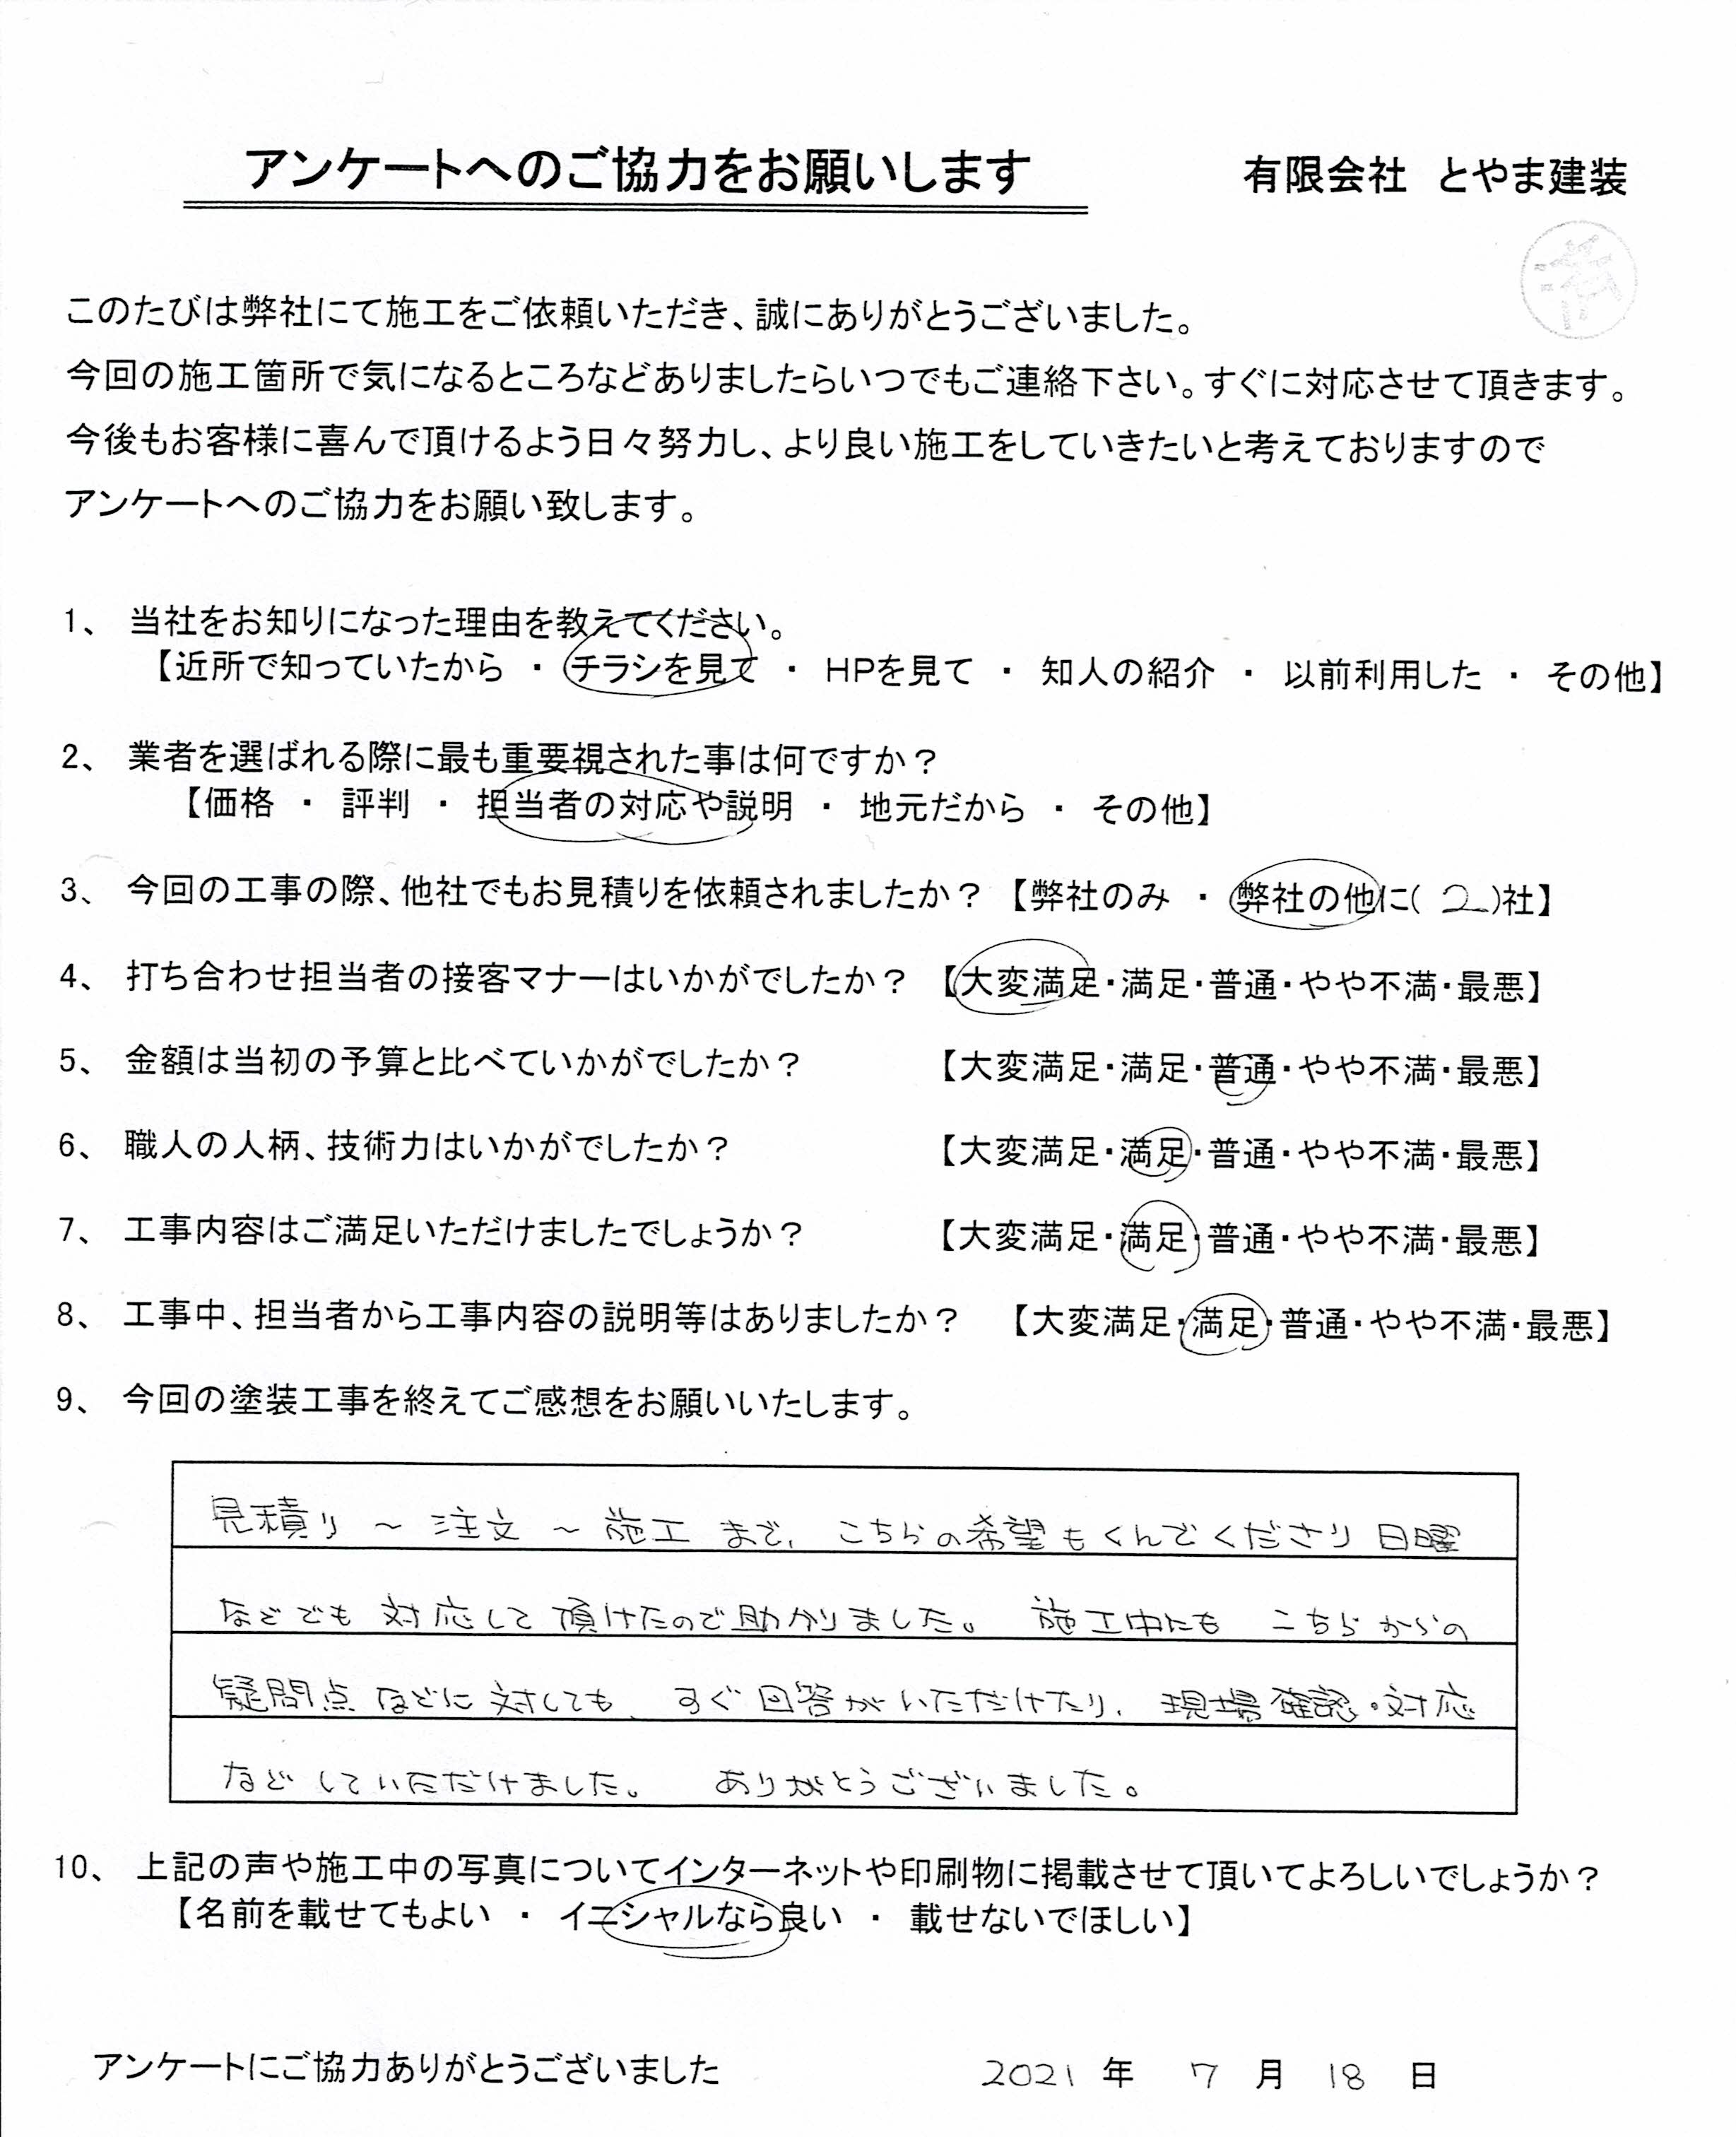 アンケートへのご協力をお願いします
有限会社 とやま建装
このたびは弊社にて施工をご依頼いただき、誠にありがとうございました。
今回の施工箇所で気になるところなどありましたらいつでもご連絡下さい。すぐに対応させて頂きます。
今後もお客様に喜んで頂けるよう日々努力し、より良い施工をしていきたいと考えておりますので
アンケートへのご協力をお願い致します。
1、 当社をお知りになった理由を教えてください。
【近所で知っていたから ・ チラシを見て ・ HPを見て ・ 知人の紹介 ・ 以前利用した ・ その他】
2、 業者を選ばれる際に最も重要視された事は何ですか?
【価格 ・ 評判 ・ 担当者の対応や説明 ・ 地元だから ・ その他】
3、 今回の工事の際、他社でもお見積りを依頼されましたか? 【弊社のみ ・ 弊社の他に( 2 )社】
4、 打ち合わせ担当者の接客マナーはいかがでしたか? 【大変満足・満足・普通・やや不満・最悪】
5、 金額は当初の予算と比べていかがでしたか? 【大変満足・満足・普通・やや不満・最悪】
6、 職人の人柄、技術力はいかがでしたか? 【大変満足・満足・普通・やや不満・最悪】
7、 工事内容はご満足いただけましたでしょうか? 【大変満足・満足・普通・やや不満・最悪】
8、 工事中、担当者から工事内容の説明等はありましたか? 【大変満足・満足・普通・やや不満・最悪】
9、 今回の塗装工事を終えてご感想をお願いいたします。
見積り ~ 注文 ~ 施工 まで、こちらの希望もくんでくださり 日曜
などでも 対応して 頂けたので助かりました。 施工中にも こちらからの
疑問点 などに 対しても、すぐ 回答が いただけたり、現場確認・対応
など していただけました。 ありがとうございました。
10、 上記の声や施工中の写真についてインターネットや印刷物に掲載させて頂いてよろしいでしょうか?
【名前を載せてもよい ・ イニシャルなら良い ・ 載せないでほしい】
アンケートにご協力ありがとうございました
2021 年 7 月 18 日